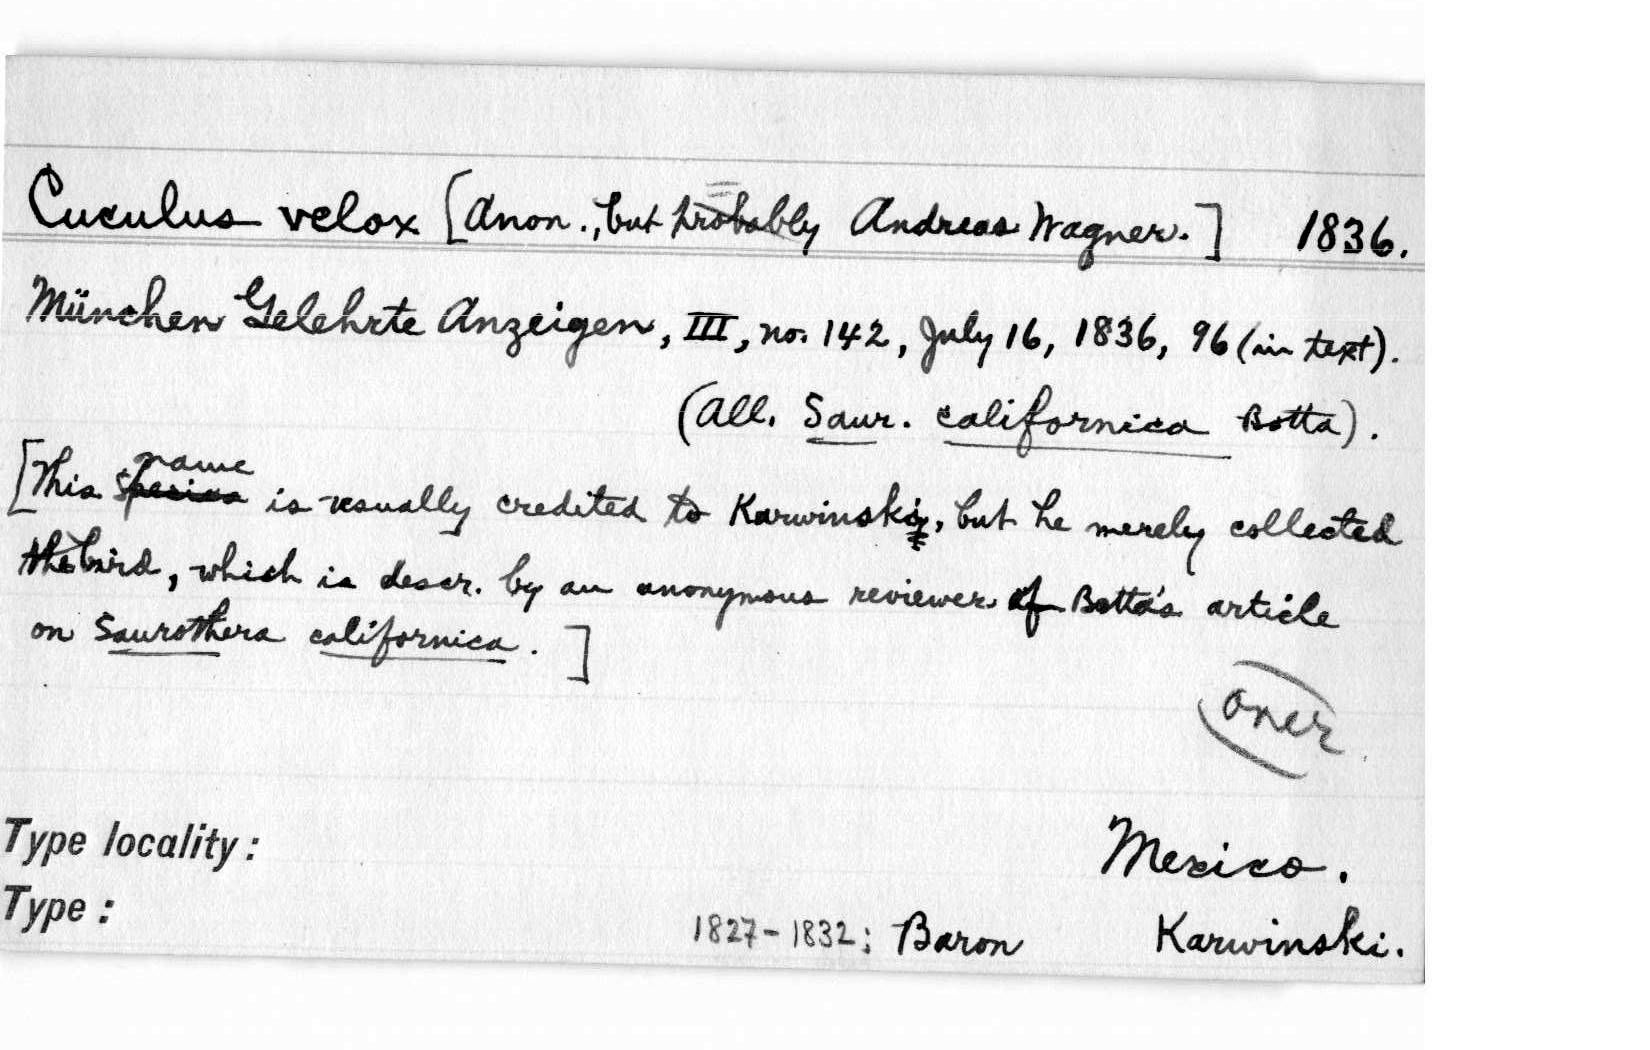 Cuculus velox [Anon., but probably Andreas Wagner.] 1836.
München Gelehrte Anzeigen, III, no. 142, July 16, 1836, 96 (in text).
(All. Saur. californica Botta).
name
[This species is usually credited to Karwinski, but he merely collected
the bird, which is descr. by an anonymous reviewer of Botta's article
on Saurothera californica.]
over
Type locality: Mexico.
Type: 1827-1832: Baron Karwinski.